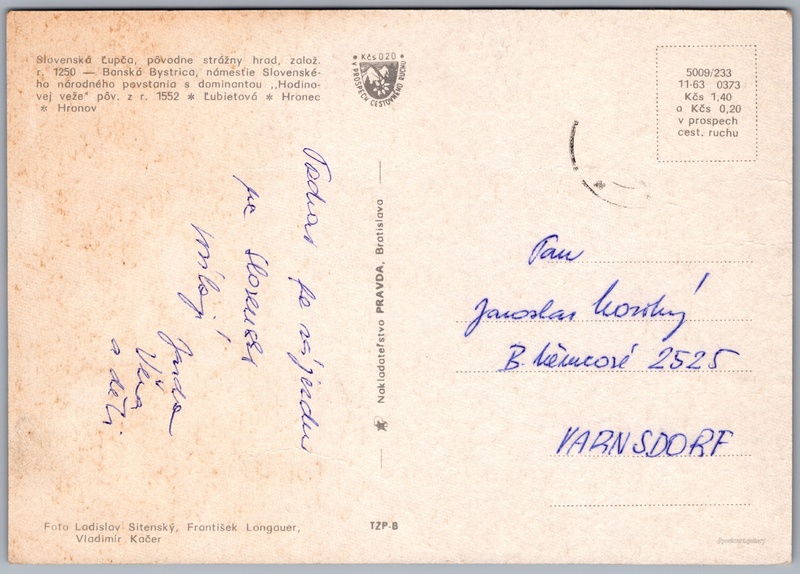 Slovenská Ľupča, pôvodne strážny hrad, založ.
r. 1250 — Banská Bystrica, námestie Slovenské-
ho národného povstania s dominantou „Hodino-
vej veže" pôv. z r. 1552 * Ľubietová * Hronec
* Hronov
• Kčs 0.20 •
V PROSPECH CESTOVNÉHO RUCHU
5009/233
11-63 0373
Kčs 1,40
a Kčs 0,20
v prospech
cest. ruchu
zájezdu
po Slovensku
Jarda
Věra
a děti
Nakladateľstvo PRAVDA, Bratislava
Pan
Jaroslav
B. Němcové 2525
VARNSDORF
Foto Ladislav Sitenský, František Longauer,
Vladimír Kačer
TZP-B